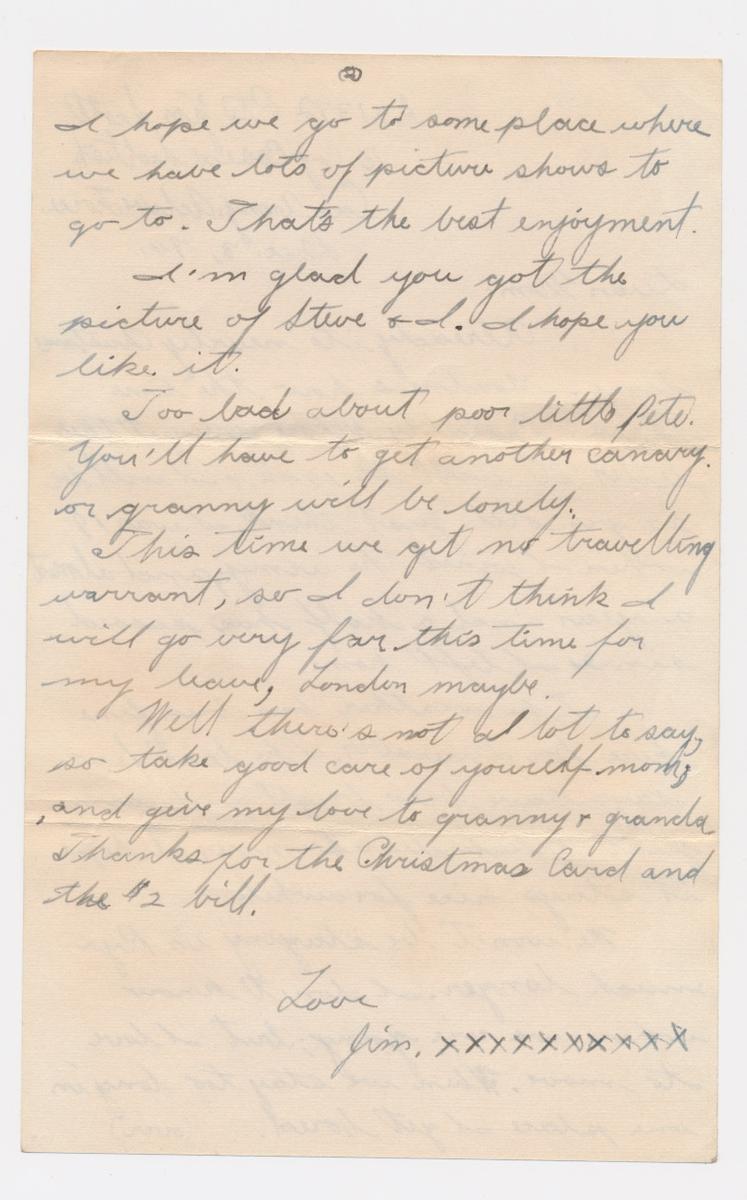 ②
I hope we go to some place where
we have lots of picture shows to
go to. That's the best enjoyment.
I'm glad you got the
picture of Steve & I. I hope you
like it.
Too bad about poor little Pete.
You'll have to get another canary.
or granny will be lonely.
This time we get no travelling
warrant, so I don't think I
will go very far this time for
my leave, London maybe.
Well there's not a lot to say,
so take good care of yourself mom,
and give my love to granny & granda
Thanks for the Christmas Card and
the $2 bill.
Love
Jim. xxxxxxxxxxx